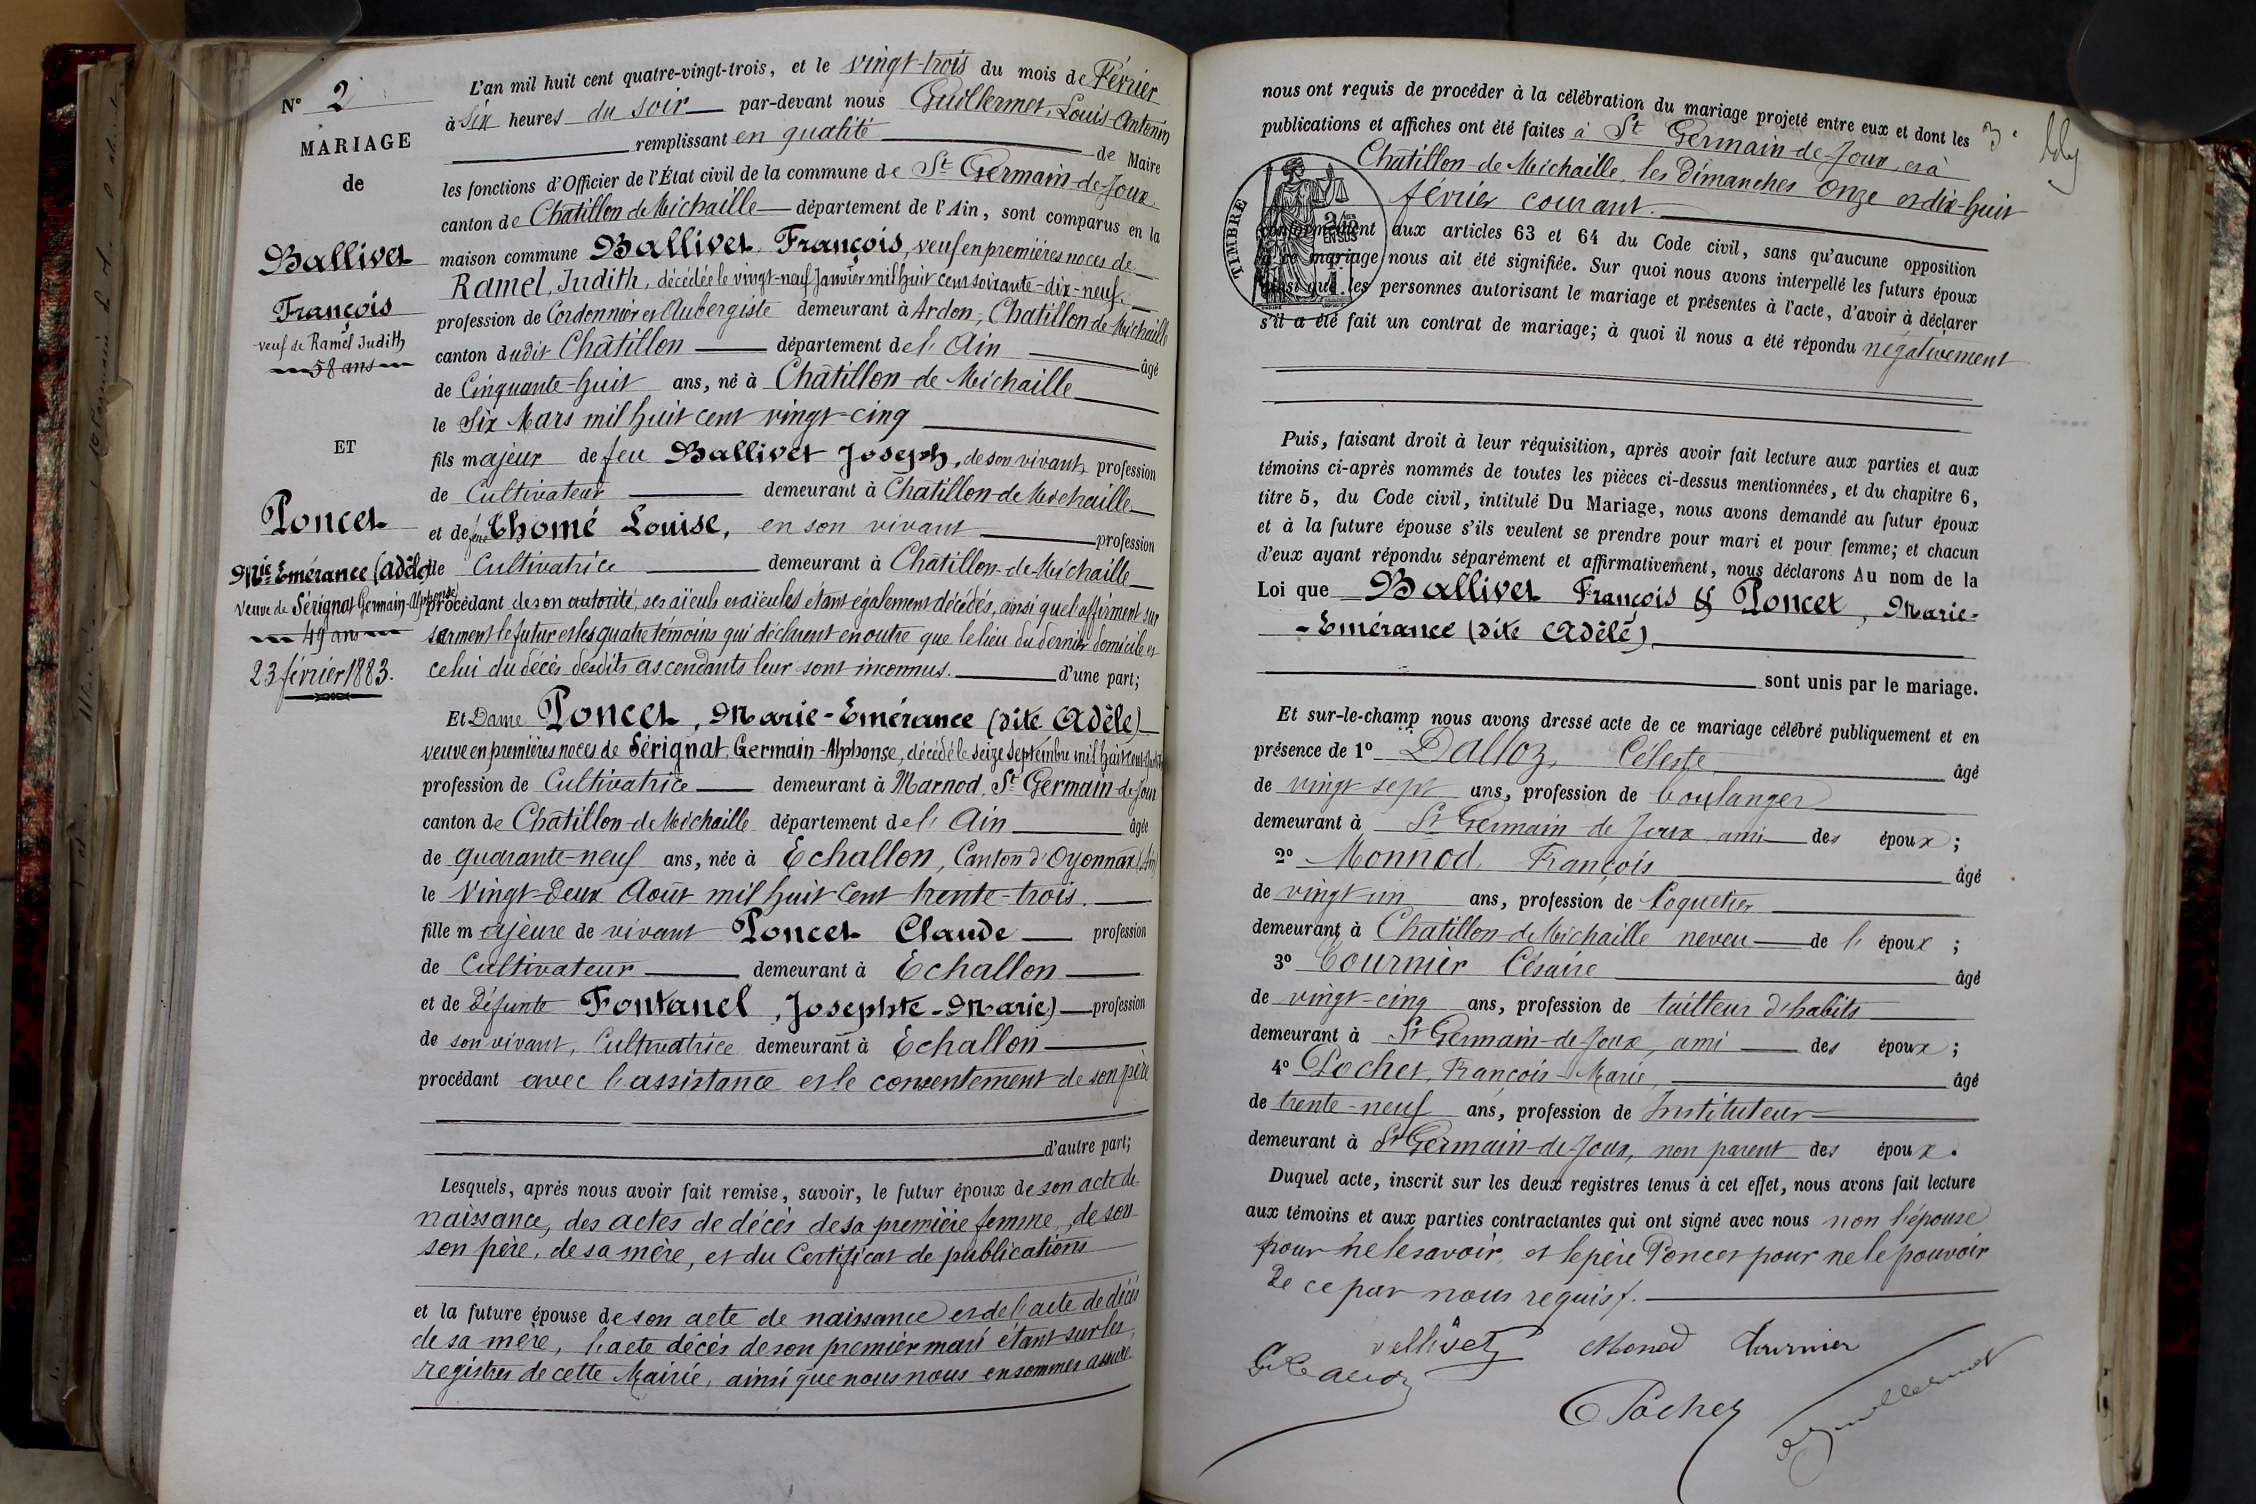 N° 2
MARIAGE
de
Ballivet
François
veuf de Ramel Judith
58 ans
ET
Poncet
Mie Emérance (Adèle)
Veuve de Sérignat Germain-Alphonse
49 ans
23 février 1883.
L'an mil huit cent quatre-vingt-trois, et le vingt-trois du mois de Février
à six heures du soir par-devant nous Guillermet, Louis-Antonin
remplissant en qualité de Maire
les fonctions d'Officier de l'État civil de la commune de St Germain-de-Joux
canton de Chatillon de Michaille département de l'Ain, sont comparus en la
maison commune Ballivet François, veuf en premières noces de
Ramel, Judith, décédée le vingt-neuf Janvier mil huit cent soixante-dix-neuf.
profession de Cordonnier et Aubergiste demeurant à Ardon, Chatillon de Michaille
canton dudit Châtillon département de l'Ain âgé
de Cinquante-huit ans, né à Châtillon-de-Michaille
le Six Mars mil huit cent vingt-cinq
fils majeur de feu Ballivet Joseph, de son vivant profession
de Cultivateur demeurant à Chatillon-de-Michaille
et de feue Thomé Louise, en son vivant profession
de Cultivatrice demeurant à Châtillon-de-Michaille
procédant de son autorité, ses aïeuls et aïeules étant également décédés, ainsi que l'affirment sur
serment le futur et les quatre témoins qui déclarent en outre que le lieu du dernier domicile et
celui du décès desdits ascendants leur sont inconnus. d'une part;
Et Dame Poncet, Marie-Emérance (dite Adèle)
veuve en premières noces de Sérignat, Germain-Alphonse, décédé le seize Septembre mil huit cent
profession de Cultivatrice demeurant à Marnod, St Germain-de-Joux
canton de Châtillon-de-Michaille département de l'Ain âgée
de quarante-neuf ans, née à Echallon, Canton d'Oyonnax (Ain)
le Vingt-Deux Août mil huit Cent trente-trois.
fille majeure de vivant Poncet Claude profession
de Cultivateur demeurant à Echallon
et de Défunte Fontanel, Josephte-Marie profession
de son vivant, Cultivatrice demeurant à Echallon
procédant avec l'assistance et le consentement de son père
d'autre part;
Lesquels, après nous avoir fait remise, savoir, le futur époux de son acte de
naissance, des actes de décès de sa première femme, de son
son père, de sa mère, et du Certificat de publications
et la future épouse de son acte de naissance et de l'acte de décès
de sa mère, l'acte décès de son premier mari étant sur les
registres de cette Mairie, ainsi que nous nous en sommes assuré
3e
nous ont requis de procéder à la célébration du mariage projeté entre eux et dont les
publications et affiches ont été faites à St Germain-de-Joux, et à
Châtillon-de-Michaille, les Dimanches Onze et dix-huit
février courant.
TIMBRE
2/10
EN SUS
conformément aux articles 63 et 64 du Code civil, sans qu'aucune opposition
à ce mariage nous ait été signifiée. Sur quoi nous avons interpellé les futurs époux
ainsi que les personnes autorisant le mariage et présentes à l'acte, d'avoir à déclarer
s'il a été fait un contrat de mariage; à quoi il nous a été répondu négativement
Puis, faisant droit à leur réquisition, après avoir fait lecture aux parties et aux
témoins ci-après nommés de toutes les pièces ci-dessus mentionnées, et du chapitre 6,
titre 5, du Code civil, intitulé Du Mariage, nous avons demandé au futur époux
et à la future épouse s'ils veulent se prendre pour mari et pour femme; et chacun
d'eux ayant répondu séparément et affirmativement, nous déclarons Au nom de la
Loi que Ballivet François & Poncet, Marie-
-Emérance (dite Adèle)
sont unis par le mariage.
Et sur-le-champ nous avons dressé acte de ce mariage célébré publiquement et en
présence de 1° Dalloz, Céleste âgé
de vingt sept ans, profession de boulanger
demeurant à St Germain-de-Joux ami des époux;
2° Monnod, François âgé
de vingt un ans, profession de Coquetier
demeurant à Chatillon-de-Michaille neveu de l'époux;
3° Tournier Césaire âgé
de vingt-cinq ans, profession de tailleur d'habits
demeurant à St Germain-de-Joux, ami des époux;
4° Pochet, François-Marie, âgé
de trente-neuf ans, profession de Instituteur
demeurant à St Germain-de-Joux, non parent des époux.
Duquel acte, inscrit sur les deux registres tenus à cet effet, nous avons fait lecture
aux témoins et aux parties contractantes qui ont signé avec nous non l'épouse
pour ne le savoir, et le père Poncet pour ne le pouvoir
De ce par nous requis.
Monod Tournier
Pochet
Guillermet